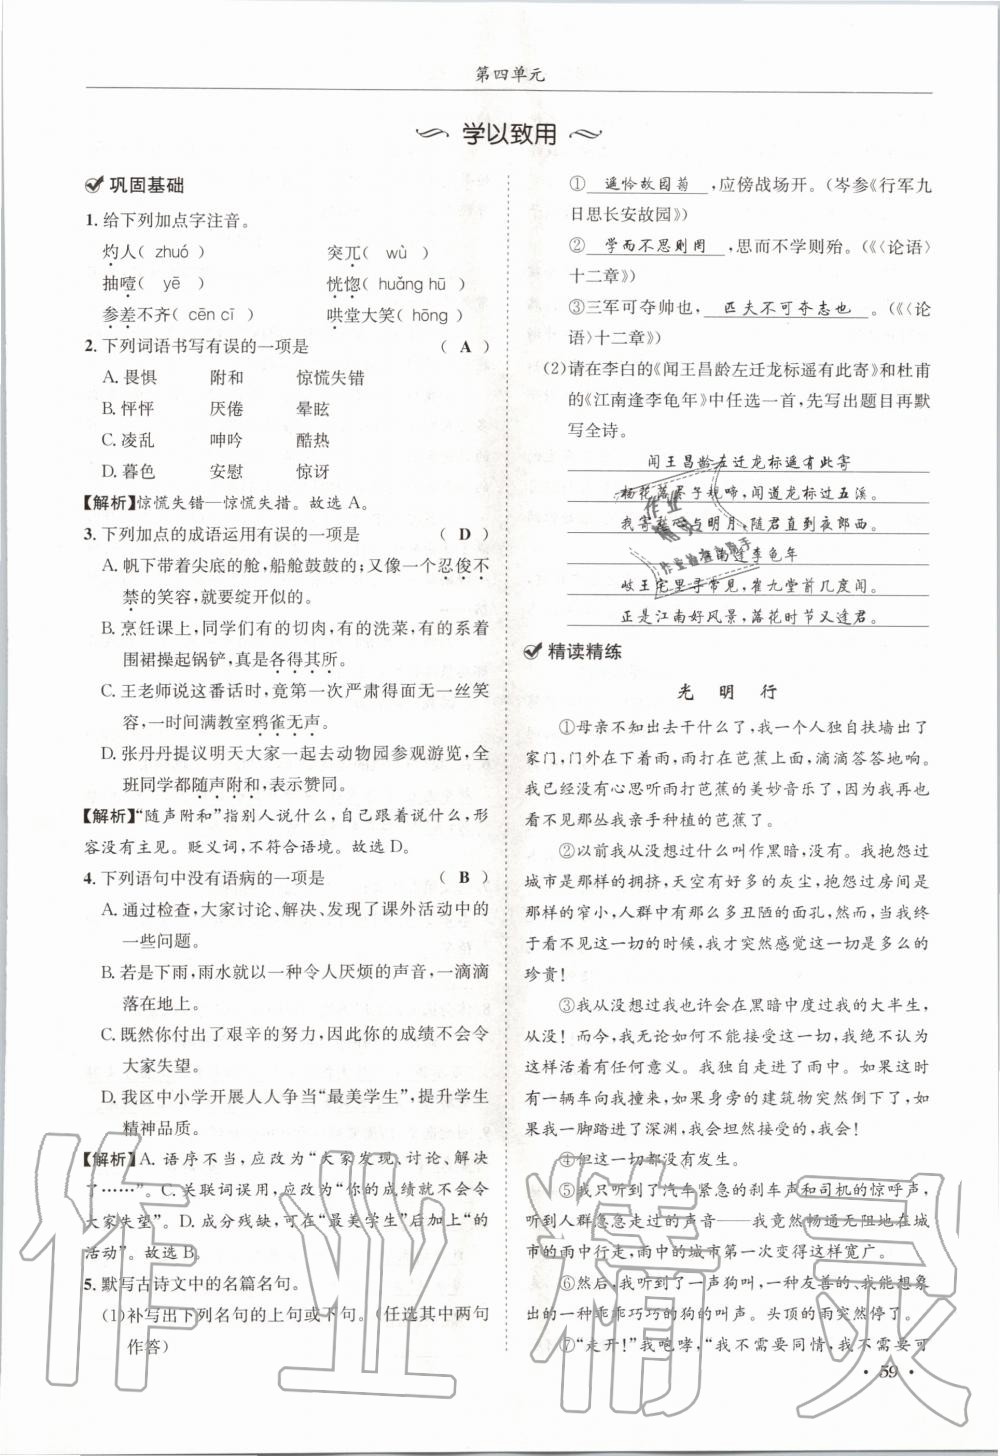 第四单元
学以致用
巩固基础
1.给下列加点字注音。
灼人( zhuó )　突兀( wù )
抽噎( yē )　恍惚( huǎng hū )
参差不齐( cēn cī )　哄堂大笑( hōng )
2.下列词语书写有误的一项是 ( A )
A.畏惧　附和　惊慌失错
B.怦怦　厌倦　晕眩
C.凌乱　呻吟　酷热
D.暮色　安慰　惊讶
【解析】惊慌失错—惊慌失措。故选A。
3.下列加点的成语运用有误的一项是 ( D )
A.帆下带着尖底的舱,船舱鼓鼓的;又像一个忍俊不
禁的笑容,就要绽开似的。
B.烹饪课上,同学们有的切肉,有的洗菜,有的系着
围裙操起锅铲,真是各得其所。
C.王老师说这番话时,竟第一次严肃得面无一丝笑
容,一时间满教室鸦雀无声。
D.张丹丹提议明天大家一起去动物园参观游览,全
班同学都随声附和,表示赞同。
【解析】“随声附和”指别人说什么,自己跟着说什么,形
容没有主见。贬义词,不符合语境。故选D。
4.下列语句中没有语病的一项是 ( B )
A.通过检查,大家讨论、解决、发现了课外活动中的
一些问题。
B.若是下雨,雨水就以一种令人厌烦的声音,一滴滴
落在地上。
C.既然你付出了艰辛的努力,因此你的成绩不会令
大家失望。
D.我区中小学开展人人争当“最美学生”,提升学生
精神品质。
【解析】A.语序不当,应改为“大家发现、讨论、解决
了……”。C.关联词误用,应改为“你的成绩不会令
大家失望”。D.成分残缺,可在“最美学生”后加上“的
活动”。故选B。
5.默写古诗文中的名篇名句。
(1)补写出下列名句的上句或下句。(任选其中两句
作答)
① 遥怜故园菊 ,应傍战场开。(岑参《行军九
日思长安故园》)
② 学而不思则罔 ,思而不学则殆。(《〈论语〉
十二章》)
③三军可夺帅也, 匹夫不可夺志也 。(《〈论
语〉十二章》)
(2)请在李白的《闻王昌龄左迁龙标遥有此寄》和杜甫
的《江南逢李龟年》中任选一首,先写出题目再默
写全诗。
闻王昌龄左迁龙标遥有此寄
杨花落尽子规啼,闻道龙标过五溪。
我寄愁心与明月,随君直到夜郎西。
江南逢李龟年
岐王宅里寻常见,崔九堂前几度闻。
正是江南好风景,落花时节又逢君。
精读精练
光 明 行
①母亲不知出去干什么了,我一个人独自扶墙出了
家门,门外在下着雨,雨打在芭蕉上面,滴滴答答地响。
我已经没有心思听雨打芭蕉的美妙音乐了,因为我再也
看不见那丛我亲手种植的芭蕉了。
②以前我从没想过什么叫作黑暗,没有。我抱怨过
城市是那样的拥挤,天空有好多的灰尘,抱怨过房间是
那样的窄小,人群中有那么多丑陋的面孔,然而,当我终
于看不见这一切的时候,我才突然感觉这一切是多么的
珍贵!
③我从没想过我也许会在黑暗中度过我的大半生,
从没!而今,我无论如何不能接受这一切,我绝不认为
这样活着有任何意义。我独自走进了雨中。如果这时
有一辆车向我撞来,如果身旁的建筑物突然倒了,如果
我一脚踏进了深渊,我会坦然接受的,我会!
④但这一切都没有发生。
⑤我只听到了汽车紧急的刹车声和司机的惊呼声,
听到人群急急走过的声音——我竟然畅通无阻地在城
市的雨中前行,雨中的城市第一次变得这样宽广。
⑥然后,我听到了一声狗叫,一种友善的、我能想象
出的一种乖乖巧巧的狗的叫声。头顶的雨突然停了。
⑦“走开!”我咆哮,“我不需要同情,我不需要可
· 59 ·
作业精灵